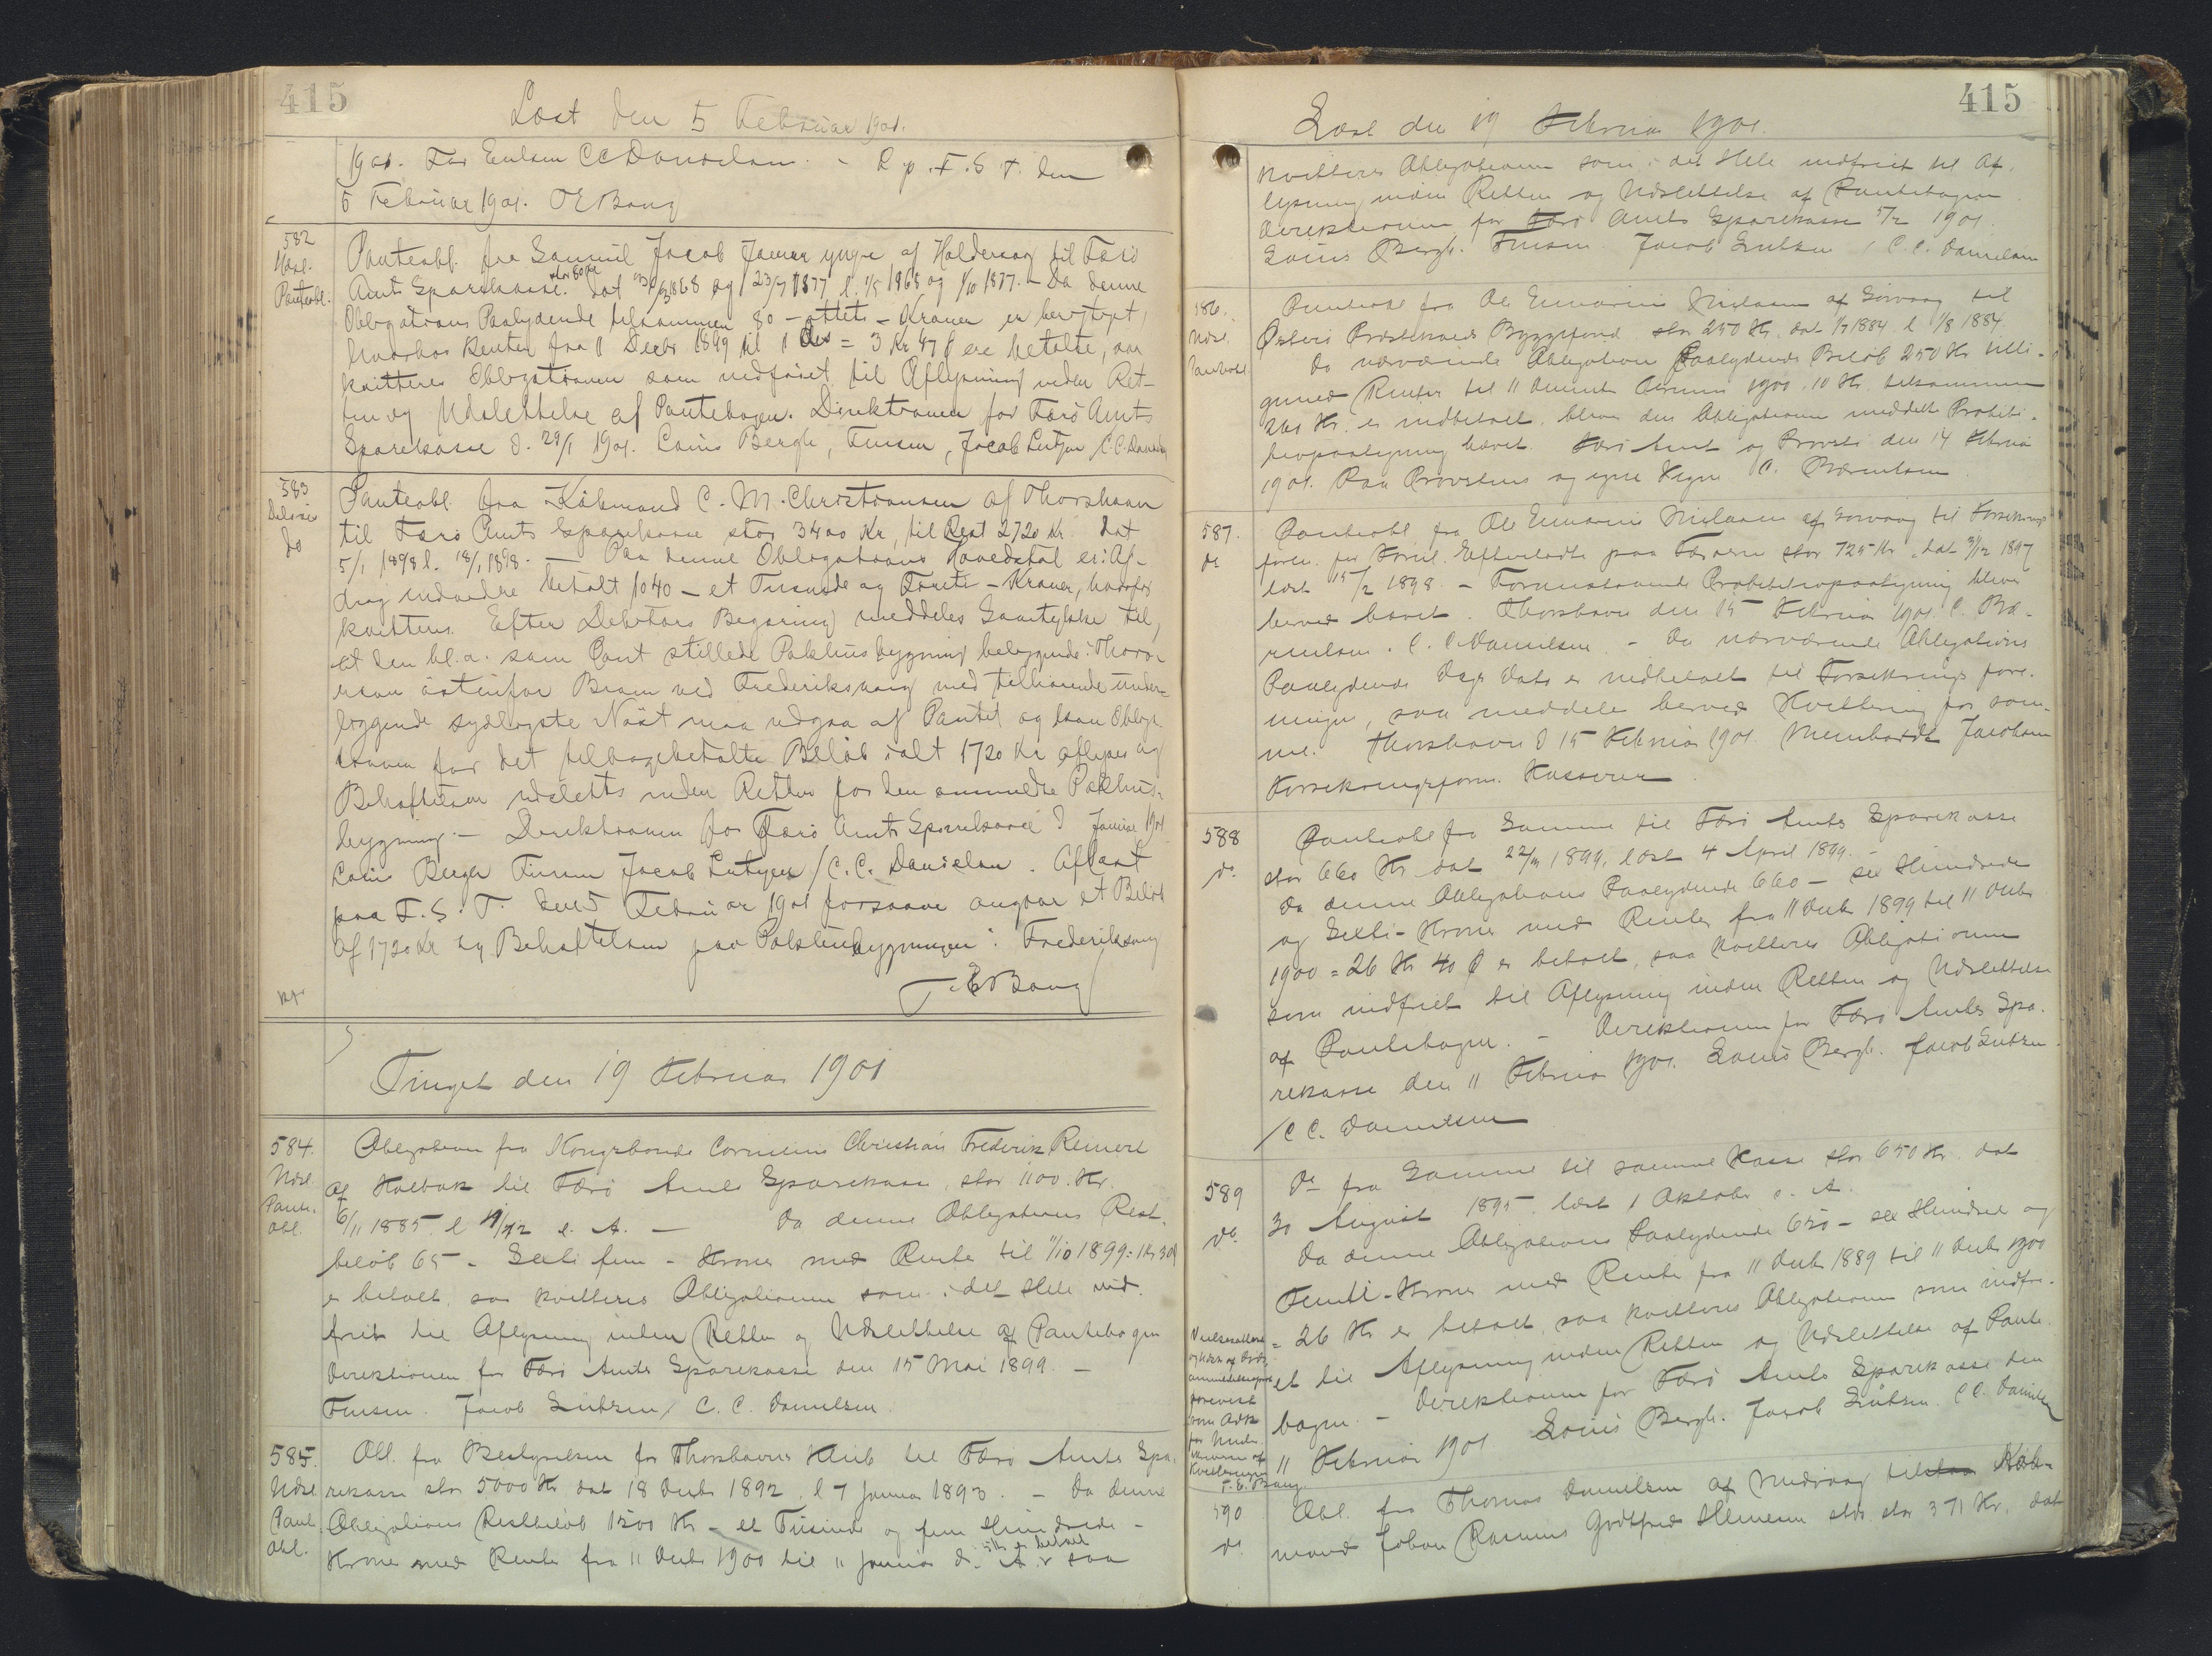 415
Læst den 5 Februar 1901.
1901. Finsen C C Danielsen. - L. p. F. S. T. den
5 Februar 1901. T E Bang
582
Udsl.
Panteobl.
Panteobl. fra Samuel Jacob Joensen yngre af Haldersvig til Færø
Amts Sparekasse stor 80 Kr dat 1868 og 23/7 1877 l. 1/5 1868 og 1/10 1877. - Da denne
Obligations Paalydende tilsammen 80 - otteti - Kroner er berigtiget,
hvorhos Renter fra 11 Decbr 1899 til = 3 Kr 47 ø ere betalte, saa
kvitteres Obligationen som indfriet til Aflysning inden Ret-
ten og Udslettelse af Pantebogen. Direktionen for Færø Amts
Sparekasse d. 29/1 1901. Louis Bergh, Finsen, Jacob Lützen / C.C. Danielsen
583
do
Panteobl. fra Købmand C. M. Christiansen af Thorshavn
til Færø Amts Sparekasse stor 3400 Kr, til Rest 2720 Kr dat
5/1 1898 l. 18/1 1898. - Paa denne Obligations Hovedstol er i Af-
drag indbetalt 1040 - et Tusinde og Fyrreti - Kroner, hvorfor
kvitteres. Efter Debitors Begæring meddeles Samtykke til,
at den bl. a. som Pant stillede Pakhusbygning beliggende i Thors-
havn østenfor Broen ved Frederiksvaag med tilhørende under-
liggende sydligste Nøst maa udgaa af Pantet og kan Obliga-
tionen for det tilbagebetalte Beløb ialt 1720 Kr aflyses og
Behæftelsen udslettes inden Retten for den ommeldte Pakhus-
bygning. - Direktionen for Færø Amts Sparekasse d Januar 1901
Louis Bergh Finsen Jacob Lützen / C. C. Danielsen. Aflæst
paa F. S. T. den 5 Februar 1901 forsaavidt angaar et Beløb
af 1720 Kr og Behæftelsen paa Pakhusbygningen i Frederiksvaag
T. E Bang
Tinget den 19 Februar 1901
584.
Udsl.
Pante-
obl.
Obligation fra Kongsbonde Cornelius Christian Frederik Reinert
af Kalbak til Færø Amts Sparekasse, stor 1100 Kr.
6/11 1885 l 4/12 s. A. - Da denne Obligations Rest-
beløb 65 - Sexti fem - Kroner med Rente til 11/10 1899 = 1 Kr 30 ø
er betalt, saa kvitteres Obligationen som i det Hele ind-
friet til Aflysning inden Retten og Udslettelse af Pantebogen
Direktionen for Færø Amts Sparekasse den 15 Mai 1899. -
Finsen. Jacob Lützen / C. C. Danielsen
585.
Udsl
Pant.
obl.
Obl. fra Bestyrelsen for Thorshavns Klub til Færø Amts Spa-
rekasse stor 5000 Kr dat 18 Decbr 1892, l 7 Januar 1893. - Da denne
Obligations Restbeløb 1500 Kr - et Tusinde og fem Hundrede -
Kroner med Rente fra 11 Decbr 1900 til 11 Januar d. A. er betalt saa
415
Læst den 19 Februar 1901.
kvitteres Obligationen som i det Hele indfriet til Af-
lysning inden Retten og Udslettelse af Pantebogen
Direktionen for Færø Amts Sparekasse 5/2 1901.
Louis Bergh. Finsen. Jacob Lützen / C. C. Danielsen
586.
Udsl.
Panteobl.
Panteobl fra Ole Enevarius Nielsen af Sørvaag til
Østerø Præstekalds Byggefond stor 250 Kr. dat 1/7 1884 l 1/8 1884.
Da nærværende Obligations Paalydende Beløb 250 Kr tilli-
gemed Renter til 11 Termin 1900, 10 Kr. tilsammen
260 Kr. er indbetalt bliver den Obligationen meddelte Prohibi-
tivpaategning hævet. Færø Amt og Provsti den 14 Februar
1901. Paa Provstens og egne Vegne C. Bærentsen
587.
do
Panteobl. fra Ole Enevarius Nielsen af Sørvaag til Forsikrings
foren. for Efterladte paa Færøerne stor 725 Kr. dat 3/12 1897
læst 15/2 1898. - Foranstaaende Prohibitivpaategning bliver
herved hævet. Thorshavn den 15 Februar 1901. C. Bæ-
rentsen. C. C. Danielsen. - Da nærværende Obligations
Paalydende Dags Dato er indbetalt til Forsikringsfore-
ningen, saa meddeles herved Kvittering for sam-
me. Thorshavn d 15 Februar 1901. Meinhardt Jacobsen
Forsikringsforen. Kasserer
588
do
Panteobl fra Samme til Færø Amts Sparekasse
stor 660 Kr dat 22/3 1899, læst 4 April 1899. -
Da denne Obligations Paalydende 660 - sex Hundrede
og Sexti - Kroner med Renter fra 11 Decbr 1899 til 11 Decbr
1900 = 26 Kr 40 ø er betalt, saa kvitteres Obligationen
som indfriet til Aflysning inden Retten og Udslettelse
af Pantebogen. - Direktionen for Færø Amts Spa-
rekasse den 11 Februar 1901. Louis Bergh. Jacob Lützen.
/ C C. Danielsen
589
do.
Do fra Samme til samme Kasse stor 650 Kr. dat
30 August 1895. læst 1 Oktober s. A.
Da denne Obligations Paalydende 650 - sex Hundrede og
Femti - Kroner med Rente fra 11 Decbr 1889 til 11 Decbr 1900
= 26 Kr er betalt, saa kvitteres Obligationen som indfri-
et til Aflysning inden Retten og Udslettelse af Pante-
bogen. - Direktionen for Færø Amts Sparekasse den
11 Februar 1901 Louis Bergh. Jacob Lützen. C C. Danielsen
forevist
som Adk
for
Kvitteringen
T. E. Bang
590
do
Obl. fra Thomas Danielsen af Midvaag til Køb-
mand Johan Rasmus Godtfred stor 371 Kr. dat